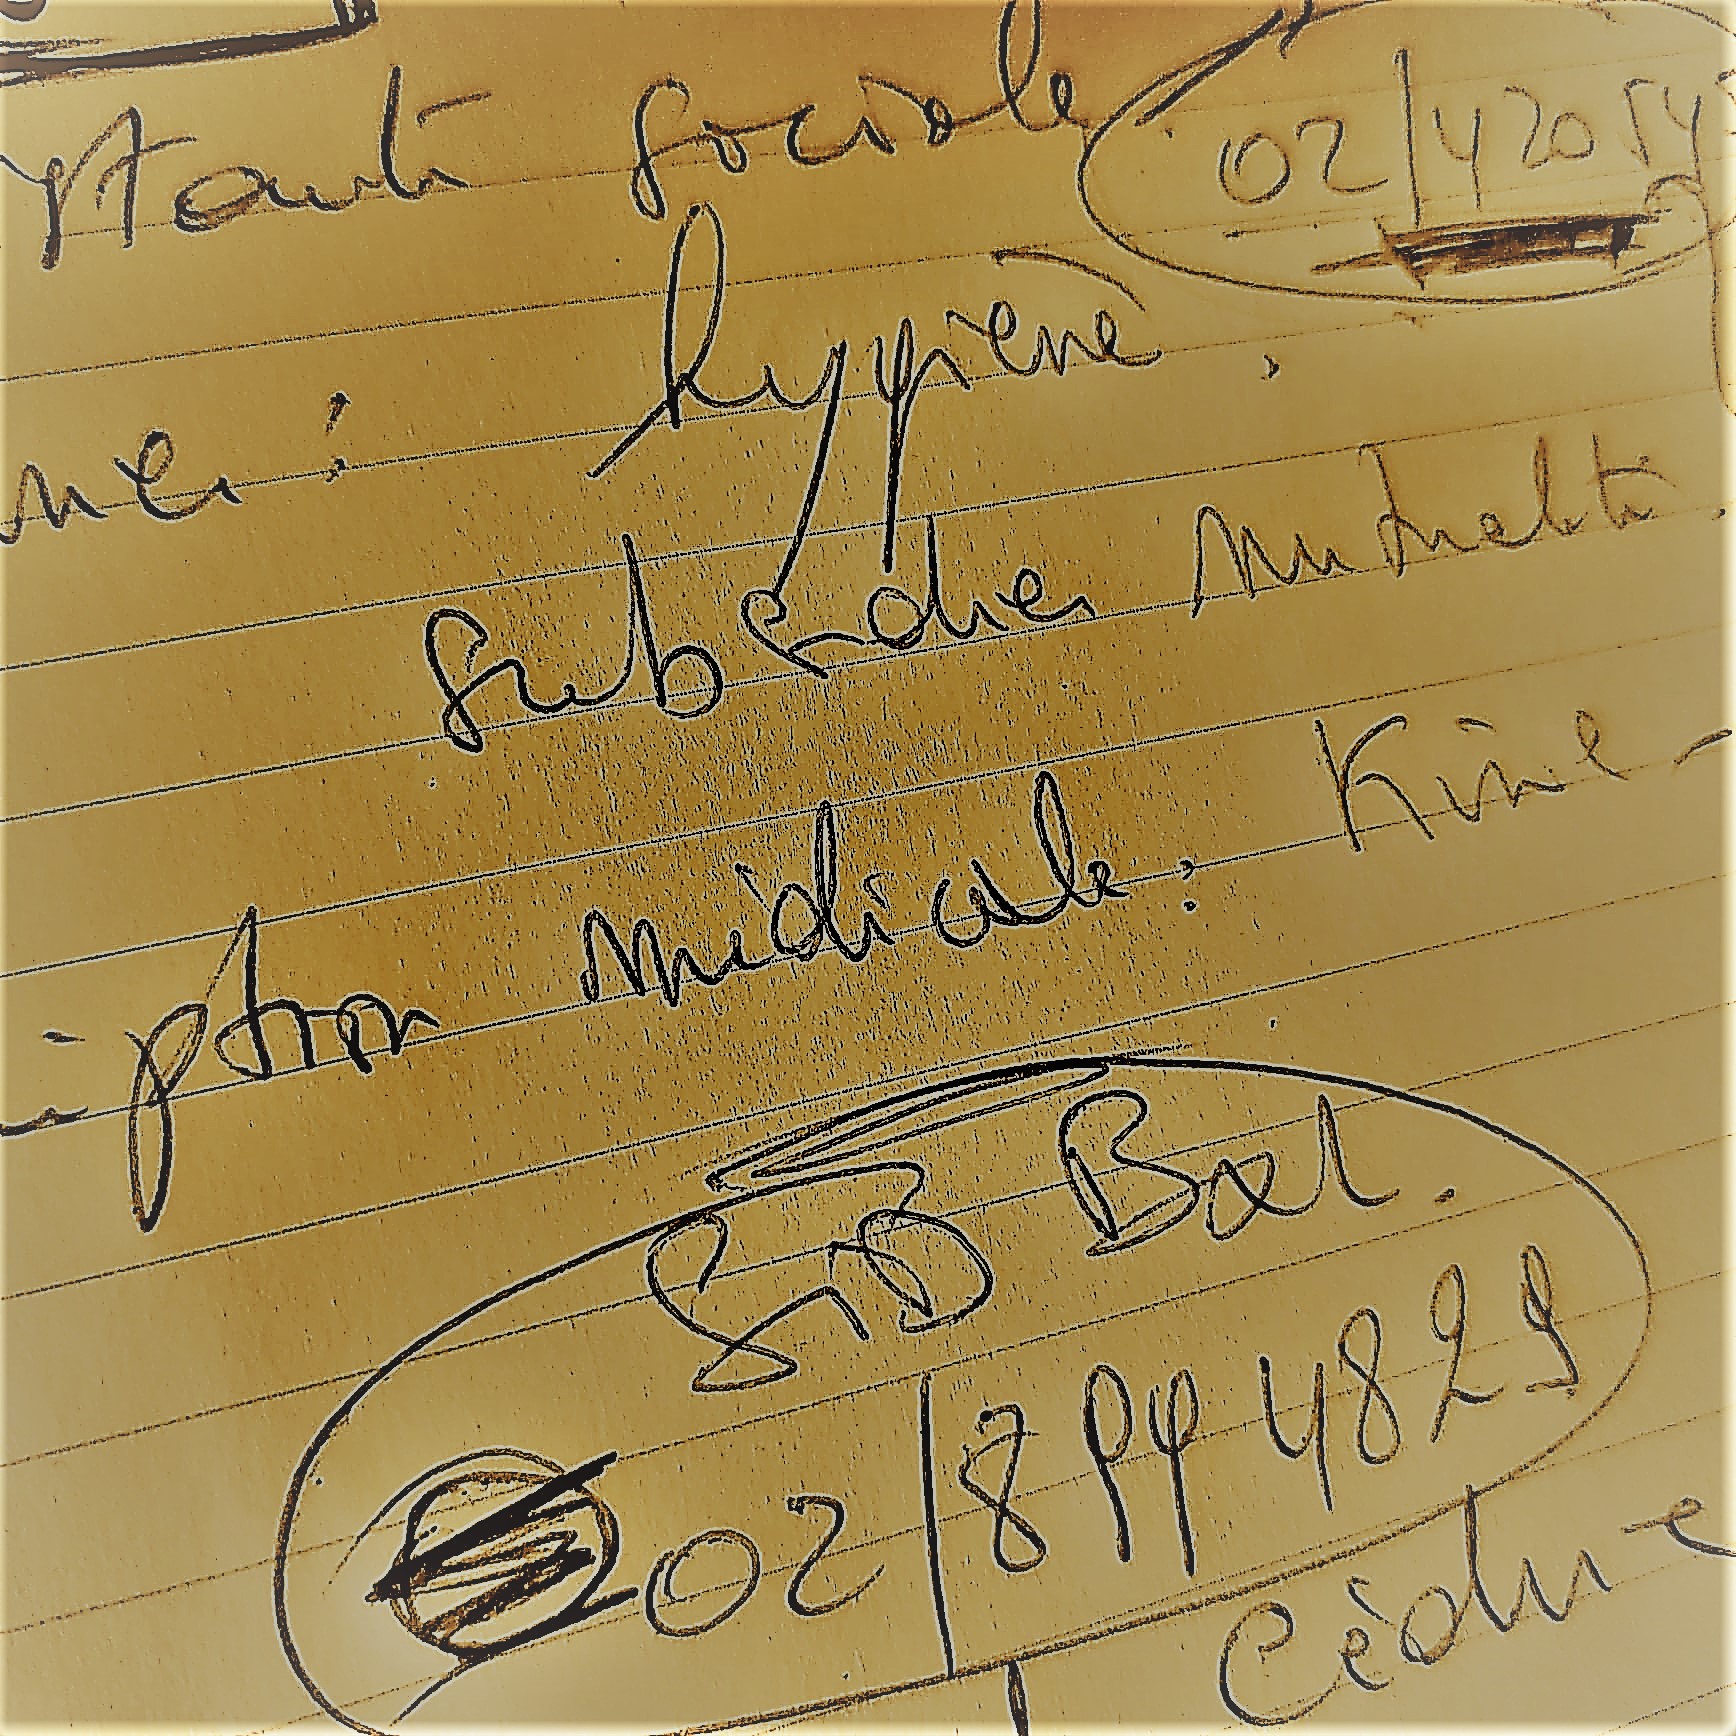 sociale 02/420 54
hygiène.
subsides Mutuelle.
iption médicale: Kiné -
SISD Bxl.
02/899 48 29
Cédric